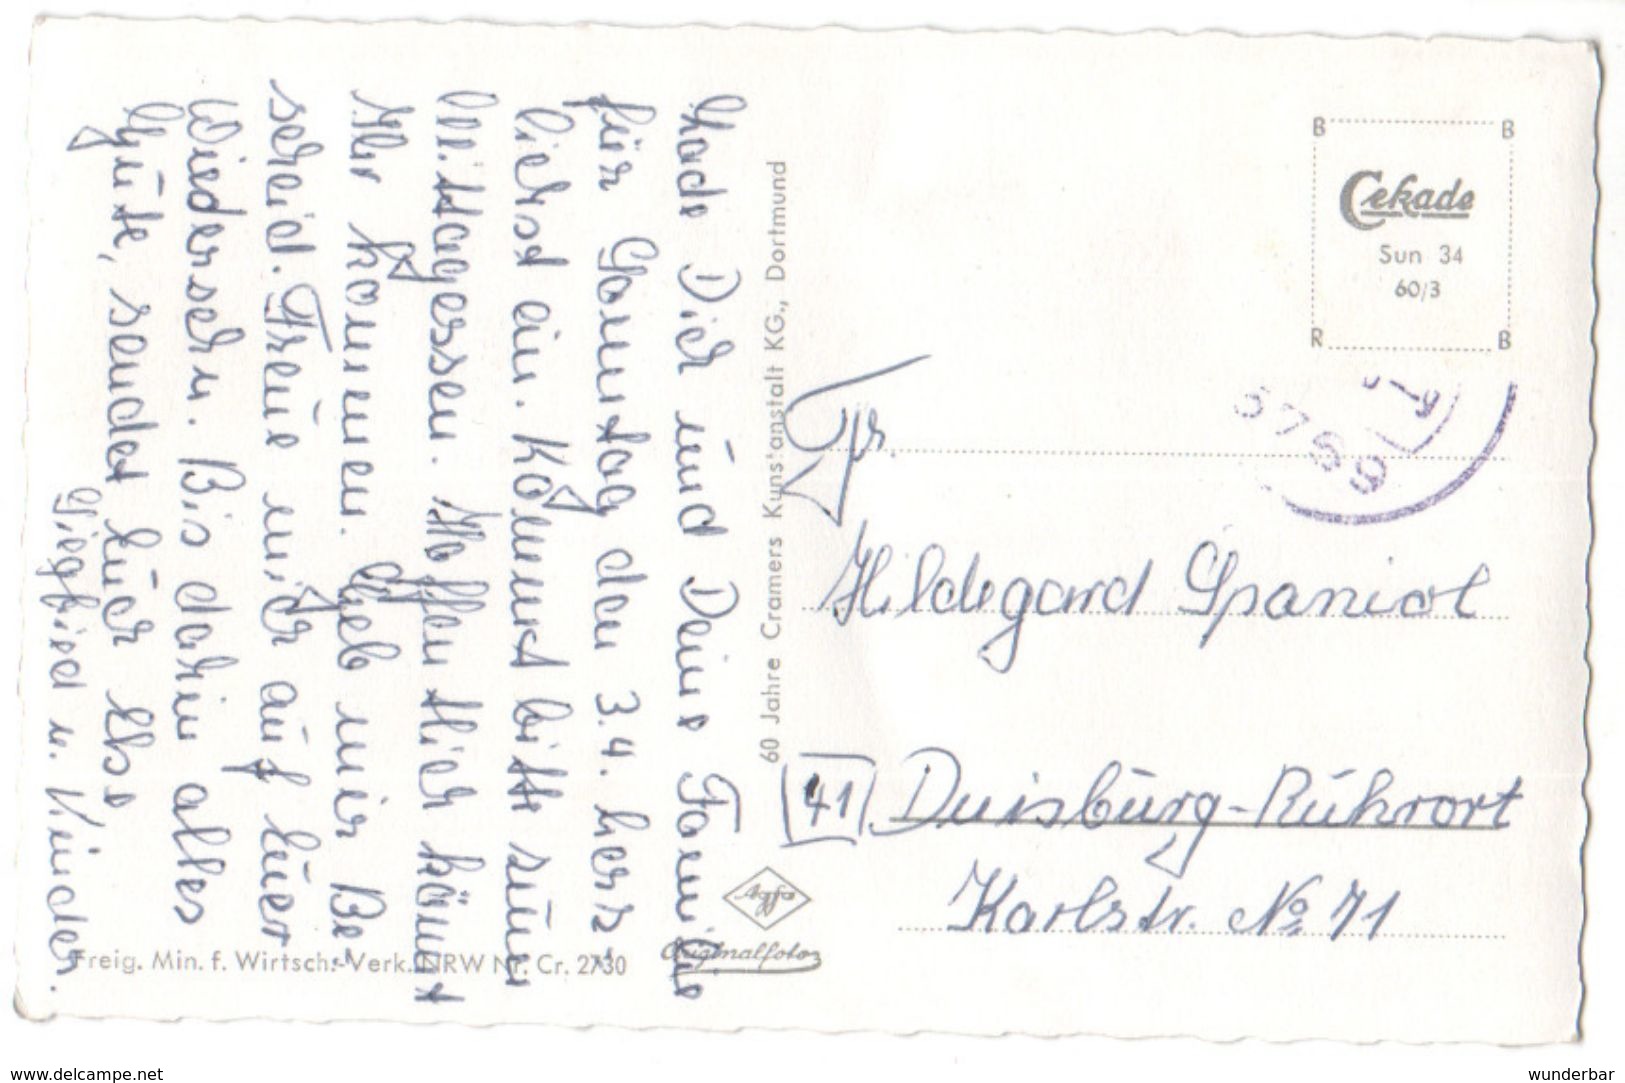 Lade Dich und Deine Familie
für Samstag den 3.4. herz-
lichst ein. Kommst bitte zum
Mittagessen. Hoffentlich könnt
Ihr kommen. Geb mir Be-
scheid. Freue mich auf Euer
Wiedersehn. Bis dahin alles
Gute, sendet Euch Else
Siegfried u. Kinder.
60 Jahre Cramers Kunstanstalt KG., Dortmund
Freig. Min. f. Wirtsch.-Verk. NRW Nr. Cr. 2730
Agfa
Originalfoto
B B
Cekade
Sun 34
60/3
R B
Hildegard Spaniol
41 Duisburg-Ruhrort
Karlstr. No 71
www.delcampe.net
wunderbar